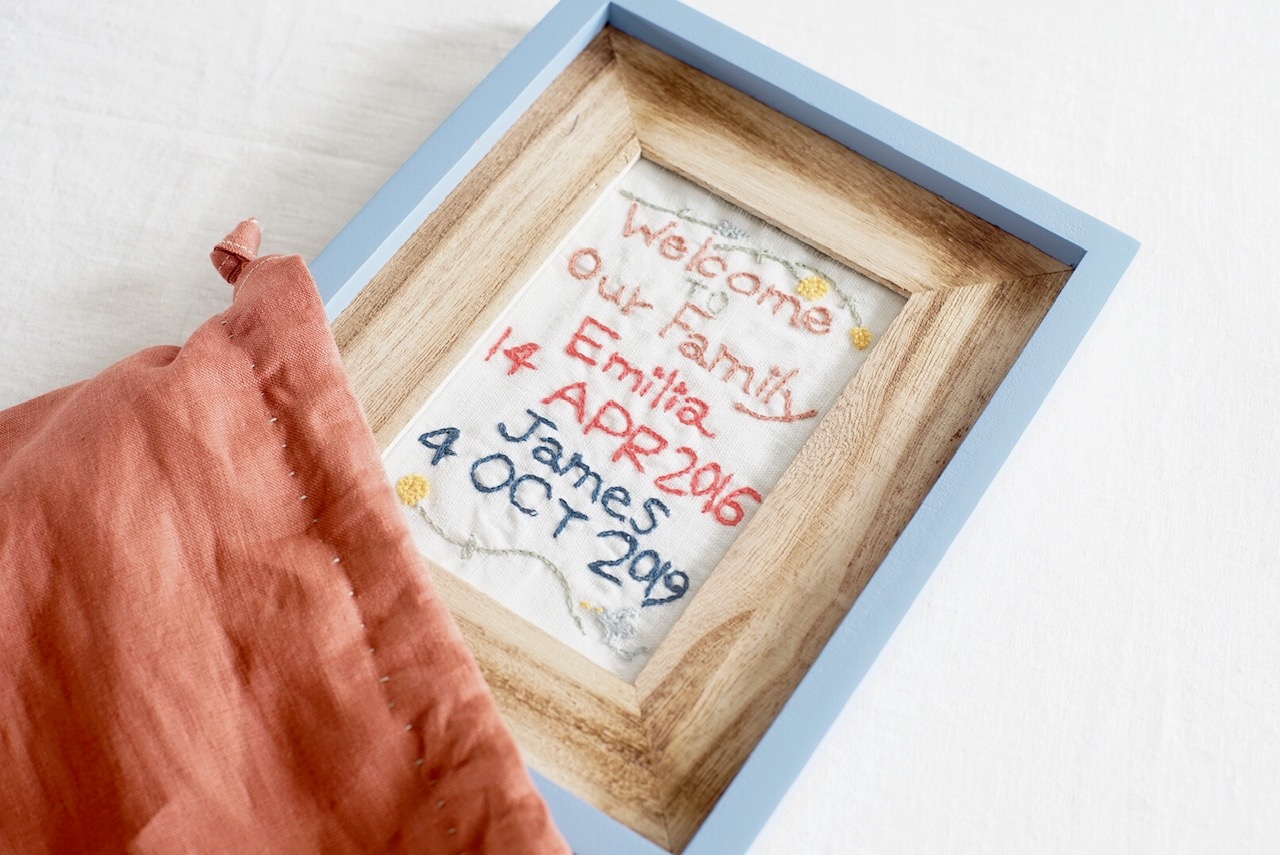 Welcome
To
Our Family
Emilia
14 APR 2016
James
4 OCT 2019